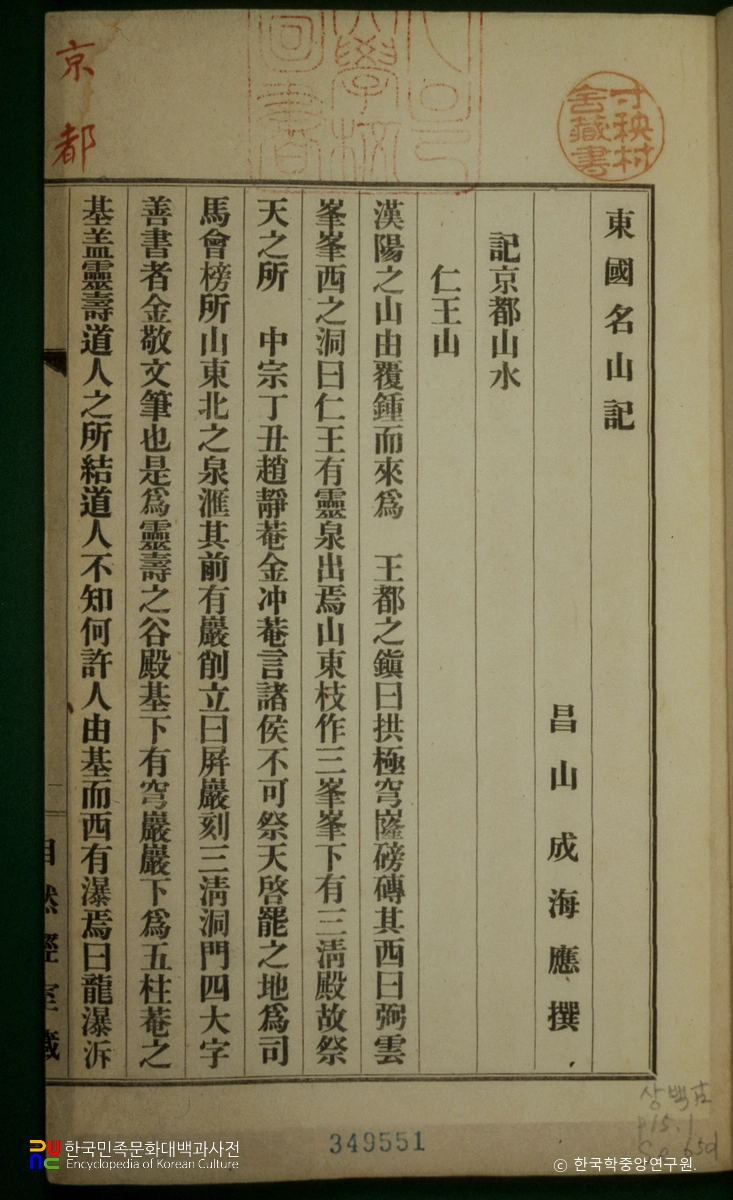 東國名山記
昌山成海應撰
記京都山水
仁王山
漢陽之山由覆鍾而來爲　王都之鎭曰拱極穹窿磅礴其西曰弼雲
峯峯西之洞曰仁王有靈泉出焉山東枝作三峯峯下有三淸殿故祭
天之所　中宗丁丑趙靜菴金冲菴言諸侯不可祭天啓罷之地爲司
馬會榜所山東北之泉滙其前有巖削立曰屛巖刻三淸洞門四大字
善書者金敬文筆也是爲靈壽之谷殿基下有穹巖巖下爲五柱菴之
基盖靈壽道人之所結道人不知何許人由基而西有瀑焉曰龍瀑泝
自然經室藏
京都
寸秧村舍藏書
349551
상백古
한국민족문화대백과사전
Encyclopedia of Korean Culture
ⓒ 한국학중앙연구원.